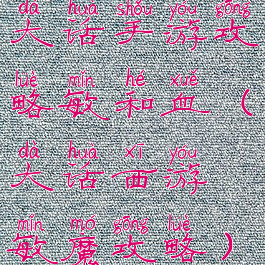 dà huà shǒu yóu gōng
大话手游攻
lüè mǐn hé xuè
略敏和血（
dà huà xī yóu
大话西游
mǐn mó gōng lüè
敏魔攻略）